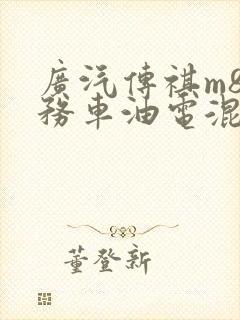 廣汽傳祺m8
務車油電混
董登新